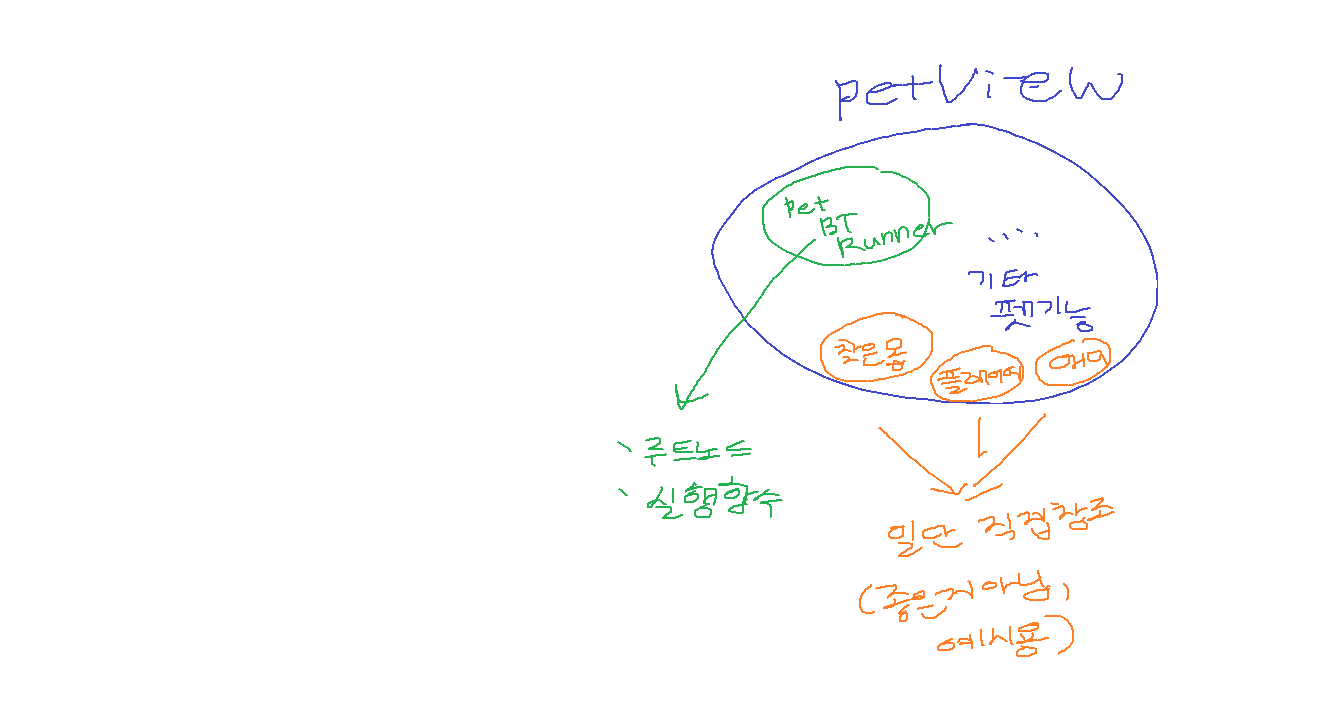 petView
pet
BT
Runner
....
기타
펫기능
찾은몹
플레이어
애미
、루트노드
、실행함수
일단 직접창조
(좋은지아님,
예시용)